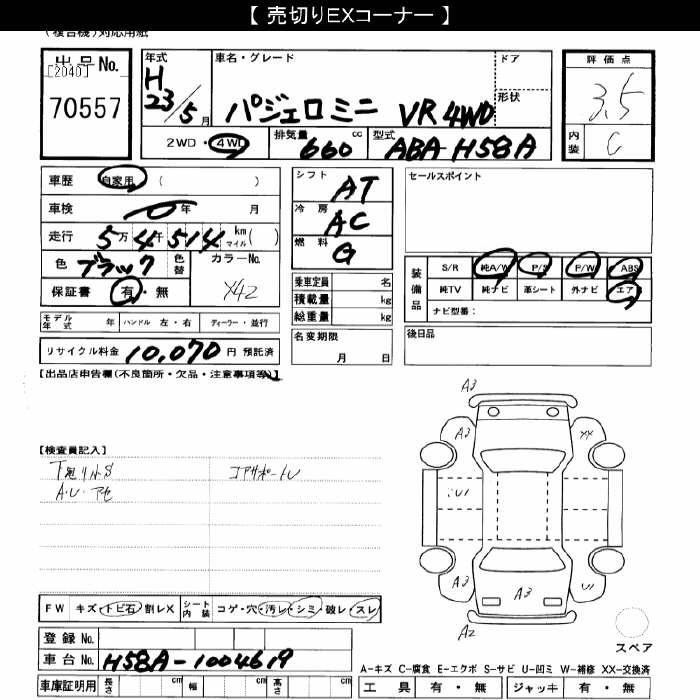 【 売切りEXコーナー 】
(複合機)対応用紙
出品No.
[2040]
70557
年式
H
23/5月
車名・グレード
パジェロミニ VR 4WD
ドア
形状
2WD・4WD
排気量
660 cc
型式
ABA-H58A
評価点
3.5
内装
C
車歴 自家用 ( )
車検 年 月
走行 5万4千514 km マイル( )
色 ブラック 色替 カラーNo. X42
保証書 有・無
シフト AT
冷房 AC
燃料 G
乗車定員 名
積載量 kg
総重量 kg
セールスポイント
装備品
S/R 純A/W P/S P/W ABS
純TV 純ナビ 革シート 外ナビ エア
ナビ型番:
モデル年式 年 ハンドル 左・右 ディーラー・並行
名変期限 月 日
後日品
リサイクル料金 10,070 円 預託済
【出品店申告欄(不良箇所・欠品・注意事項等)】
【検査員記入】
コアサポートU
A3
A3
XX
U1
A3
A3
U1
A2
スペア
FW キズ・トビ石・割レX
シート内装 コゲ・穴・汚レ・シミ・破レ・スレ
登録No.
車台No. H58A-1004619
車庫証明用 長さ cm 幅 cm 高さ cm
A-キズ C-腐食 E-エクボ S-サビ U-凹ミ W-補修 XX-交換済
工具 有・無 ジャッキ 有・無